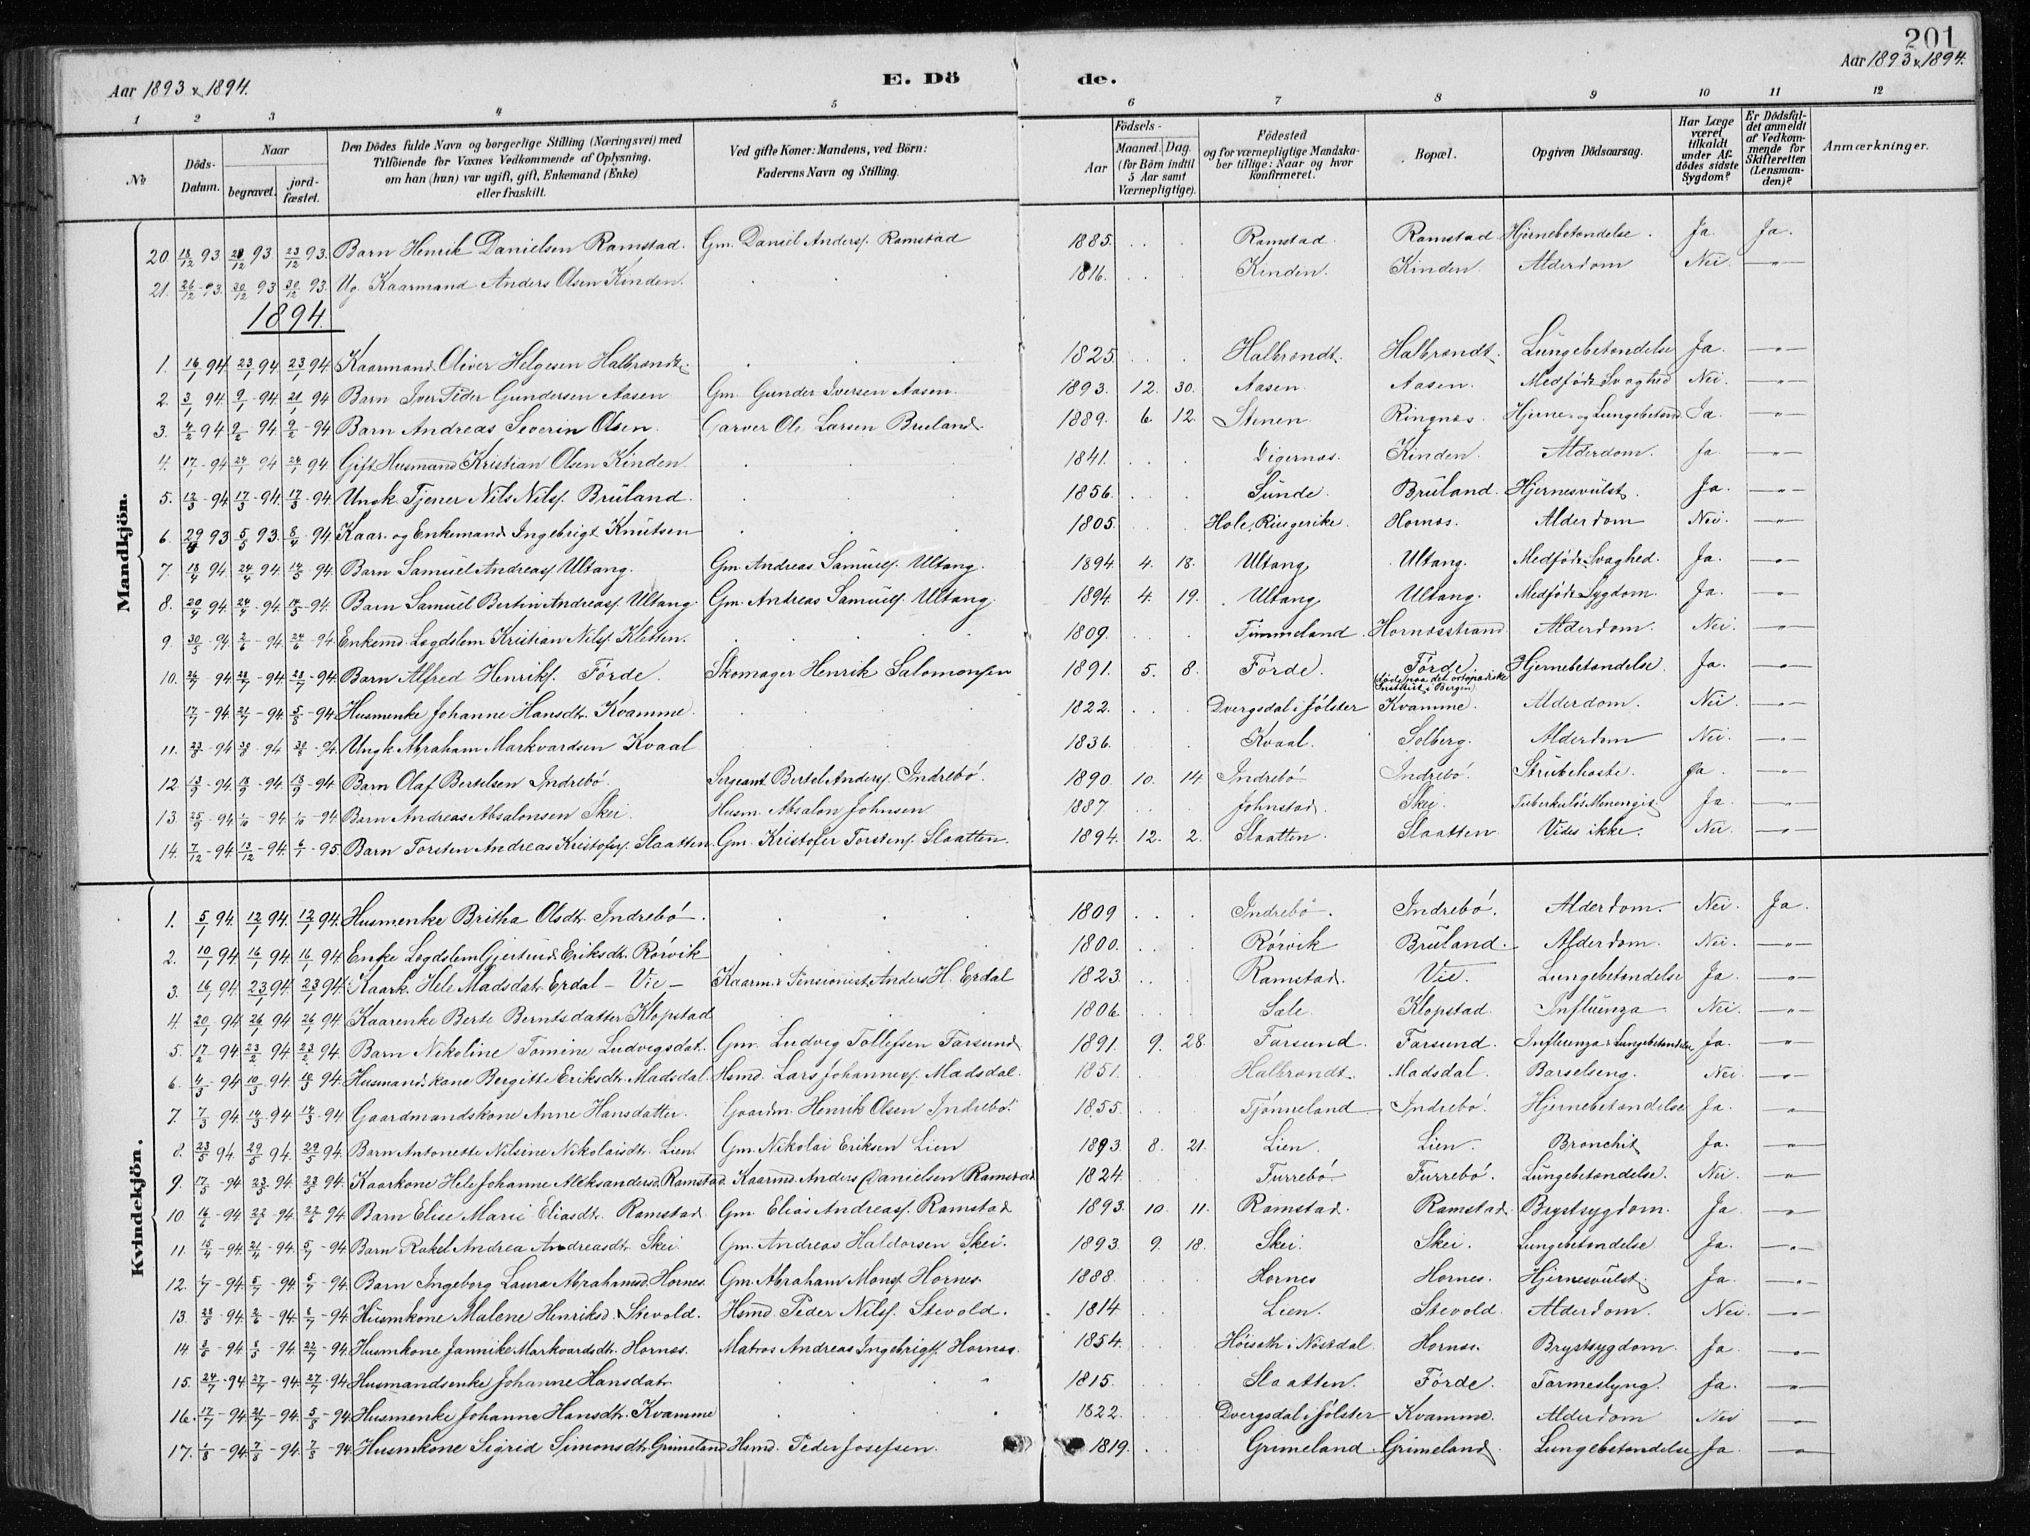 201
Aar 1893 & 1894.
E. Döde.
Aar 1893 & 1894.
1 2 3 4 5 6 7 8 9 10 11 12
No
Döds-Datum.
Naar
begravet.
jordfæstet.
Den Dödes fulde Navn og borgerlige Stilling (Næringsvei) med Tilföiende for Voxnes Vedkommende af Oplysning, om han (hun) var ugift, gift, Enkemand (Enke) eller fraskilt.
Ved gifte Koner: Mandens, ved Börn: Faderens Navn og Stilling.
Födsels-
Aar
Maaned. Dag. (for Börn indtil 5 Aar samt Værnepligtige).
Födested og for værnepligtige Mandskaber tillige: Naar og hvor konfirmeret.
Bopæl.
Opgiven Dödsaarsag.
Har Læge været tilkaldt under Afdödes sidste Sygdom?
Er Dödsfaldet anmeldt af Vedkommende for Skifteretten (Lensmanden)?
Anmærkninger.
Mandkjön.
20 18/12 93 28/12 93 23/12 93. Barn Henrik Danielsen Ramstad. Gm. Daniel Anders. Ramstad 1885. Ramstad. Ramstad Hjernebetændelse. Ja. Ja.
21. 26/12 93. 30/12 93 30/12 93. Ug. Kaarmand Anders Olsen Kinden. 1816. Kinden. Kinden. Alderdom Nei. —„—
1894.
1. 16/1 94 23/1 94 23/1 94 Kaarmand Oliver Helgesen Halbrendt. 1825. Halbrendt. Halbrendt. Lungebetendelse Ja. —„—
2. 3/1 94. 9/1 94 21/1 94 Barn Iver Peder Gundersen Aasen Gm. Gunder Iversen Aasen. 1893. 12. 30. Aasen. Aasen. Medfødt Svaghed Nei. —„—
3. 4/2 94 9/2 94. 9/2 94 Barn Andreas Severin Olsen. Garver Ole Larsen Bruland. 1889. 6 12. Stenen. Ringnes. Hjerne- og Lungebetend. Ja. —„—
4. 17/1 94 24/1 94 24/1 94 Gift Husmand Kristian Olsen Kinden. 1841. Digernes. Kinden. Alderdom. Ja. —„—
5. 13/3 94 17/3 94. 17/3 94. Ungk. Tjener Nils Nils. Bruland. 1856. Sunde. Bruland. Hjernesvulst. Ja. —„—
6. 93 5/5 93. 8/4 94 Kaar- og Enkemand Ingebrigt Knutsen 1805. Hole, Ringerike. Hornes. Alderdom Nei. —„—
7. 18/4 94. 24/4 94 14/5 94. Barn Samuel Andreas. Ultang. Gm. Andreas Samuels. Ultang. 1894 4. 18. Ultang Ultang. Medfødt Svaghed. Ja. —„—
8. 20/4 94. 24/4 94. 14/5 94. Barn Samuel Bertin Andreas. Ultang Gm. Andreas Samuels. Ultang. 1894. 4. 19. Ultang Ultang. Medfødt Sygdom. Ja. —„—
9. 30/5 94. 2/6 94. 24/6 94 Enkemd. Logdslem Kristian Nils. Kletten. 1809. Timmeland. Hornesstrand Alderdom. Nei. —„—
10. 94. 94. 94. Barn Alfred Henriks. Förde. Skomager Henrik Salomonsen 1891. 5. 8. Förde. Förde. (død paa det ortopædiske Institut i Bergen) Hjernebetændelse. Ja. —„—
17/7 94. 21/7 94. 5/8 94 Husmenke Johanne Hansdtr. Kvamme. 1822. Dvergsdal i Jølster Kvamme. Alderdom. Nei. —„—
11. 94 94 94. Ungk. Abraham Markvardsen Kvaal 1836. Kvaal. Solberg. Alderdom Nei. —„—
12. 13/9 94. 18/9 94. 13/9 94 Barn Olaf Bertelsen Indrebö Sergeant Bertel Anders. Indrebö. 1890. 10. 14. Indrebö Indrebö. Strubehoste. Ja. —„—
13. 25/9 94. 1/10 94 1/10 94. Barn Andreas Absalonsen Skei. Husm. Absalon Johnsen 1887 Johnstad. Skei. Tuberkuløs Meningit. Ja. —„—
14. 7/12 94. 13/12 94. 6/1 95. Barn Torsten Andreas Kristofers. Slaatten. Gm. Kristofer Torstens. Slaatten. 1894. 12. 2. Slaatten. Slaatten Vides ikke. Nei —„—
Kvindekjön.
1. 5/1 94. 12/1 94. 12/1 94. Husmenke Britha Olsdtr. Indrebö. 1809 Indrebö. Indrebö. Alderdom. Nei. Ja.
2. 10/1 94. 16/1 94. 16/1 94. Enke Logdslem Gjertrud Eriksdtr. Rörvik 1800. Rörvik Bruland. Alderdom. Nei. —„—
3. 16/1 94. 23/1 94. 23/1 94. Kaark. Hele Madsdatr. Erdal – Vie – Kaarm. & Pensionist Anders H. Erdal 1823. Ramstad. Vie. Lungebetendelse Ja. —„—
4. 20/1 94 26/1 94 26/1 94. Kaarenke Berte Berntsdatter Klopstad 1806. Sale. Klopstad. Influenza Nei. —„—
5. 17/2 94 23/2 94 23/2 94. Barn Nikoline Tomine Ludvigsdat. Gm. Ludvig Tollefsen Farsund 1891. 9. 28. Farsund. Farsund. Influenza & Lungebetendelse Ja. —„—
6. 4/3 94 10/3 94. 94. Husmandskone Bergitte Eriksdtr. Madsdal Hsmd. Lars Johannes. Madsdal. 1851. Halbrendt. Madsdal. Barselseng. Nei. —„—
7. 7/3 94. 14/3 94 14/3 94 Gaardmandskone Anne Hansdatter. Gaardm. Henrik Olsen Indrebö. 1855. Tjønneland Indrebö. Hjernebetændelse Ja. —„—
8. 23/5 94. 29/5 94. 29/5 94. Barn Antonette Nilsine Nikolaisdtr. Lien. Gm. Nikolai Eriksen Lien 1893. 8. 21. Lien. Lien. Bronchit Ja. —„—
9. 17/5 94 23/5 94. 23/5 94. Kaarkone Hele Johanne Aleksandersd. Ramstad Kaarmd. Anders Danielsen Ramstad 1824. Furrebö. Furrebö. Lungebetendelse. Nei —„—
10. 94 94 94 Barn Elise Marie Eliasdtr. Ramstad Gm. Elias Andreas. Ramstad 1893. 10. 11. Ramstad. Ramstad. Brystsygdom. Ja. —„—
11. 94. 94. 94 Barn Rakel Andrea Andreasdtr. Skei Gm. Andreas Haldorsen Skei. 1893. 9. 18. Skei. Skei. Lungebetendelse Ja. —„—
12. 1/7 94. 5/7 94. 5/7 94. Barn Ingeborg Laura Abrahamsd. Hornes. Gm. Abraham Mons. Hornes. 1888. Hornes Hornes. Hjernesvulst. Ja. —„—
13. 94. 94. 94. Husmkone Malene Henriksd. Stevold. Hsmd. Peder Nils. Stevold. 1814. Lien. Stevold. Alderdom. Nei. —„—
14. 94 94 94. Husmkone Jannike Markvardsdtr. Hornes. Matros Andreas Ingebrigts. Hornes. 1854. Höiseth i Nöstdal. Hornes. Brystsygdom. Ja. —„—
15. 24/7 94 27/7 94. 27/7 94 Husmandsenke Johanne Hansdatr. 1815. Slaatten. Förde. Tarmeslyng. Ja. —„—
16. 17/7 94. 21/7 94. 5/8 94. Husmenke Johanne Hansdtr. Kvamme 1822. Dvergsdal i Jølster Kvamme. Alderdom Nei —„—
17. 1/8 94. 7/8 94. 7/8 94. Husmkone Sigrid Simonsdtr. Grimeland Hsmd. Peder Josefsen. 1819. Grimeland. Grimeland. Lungebetendelse Ja. —„—